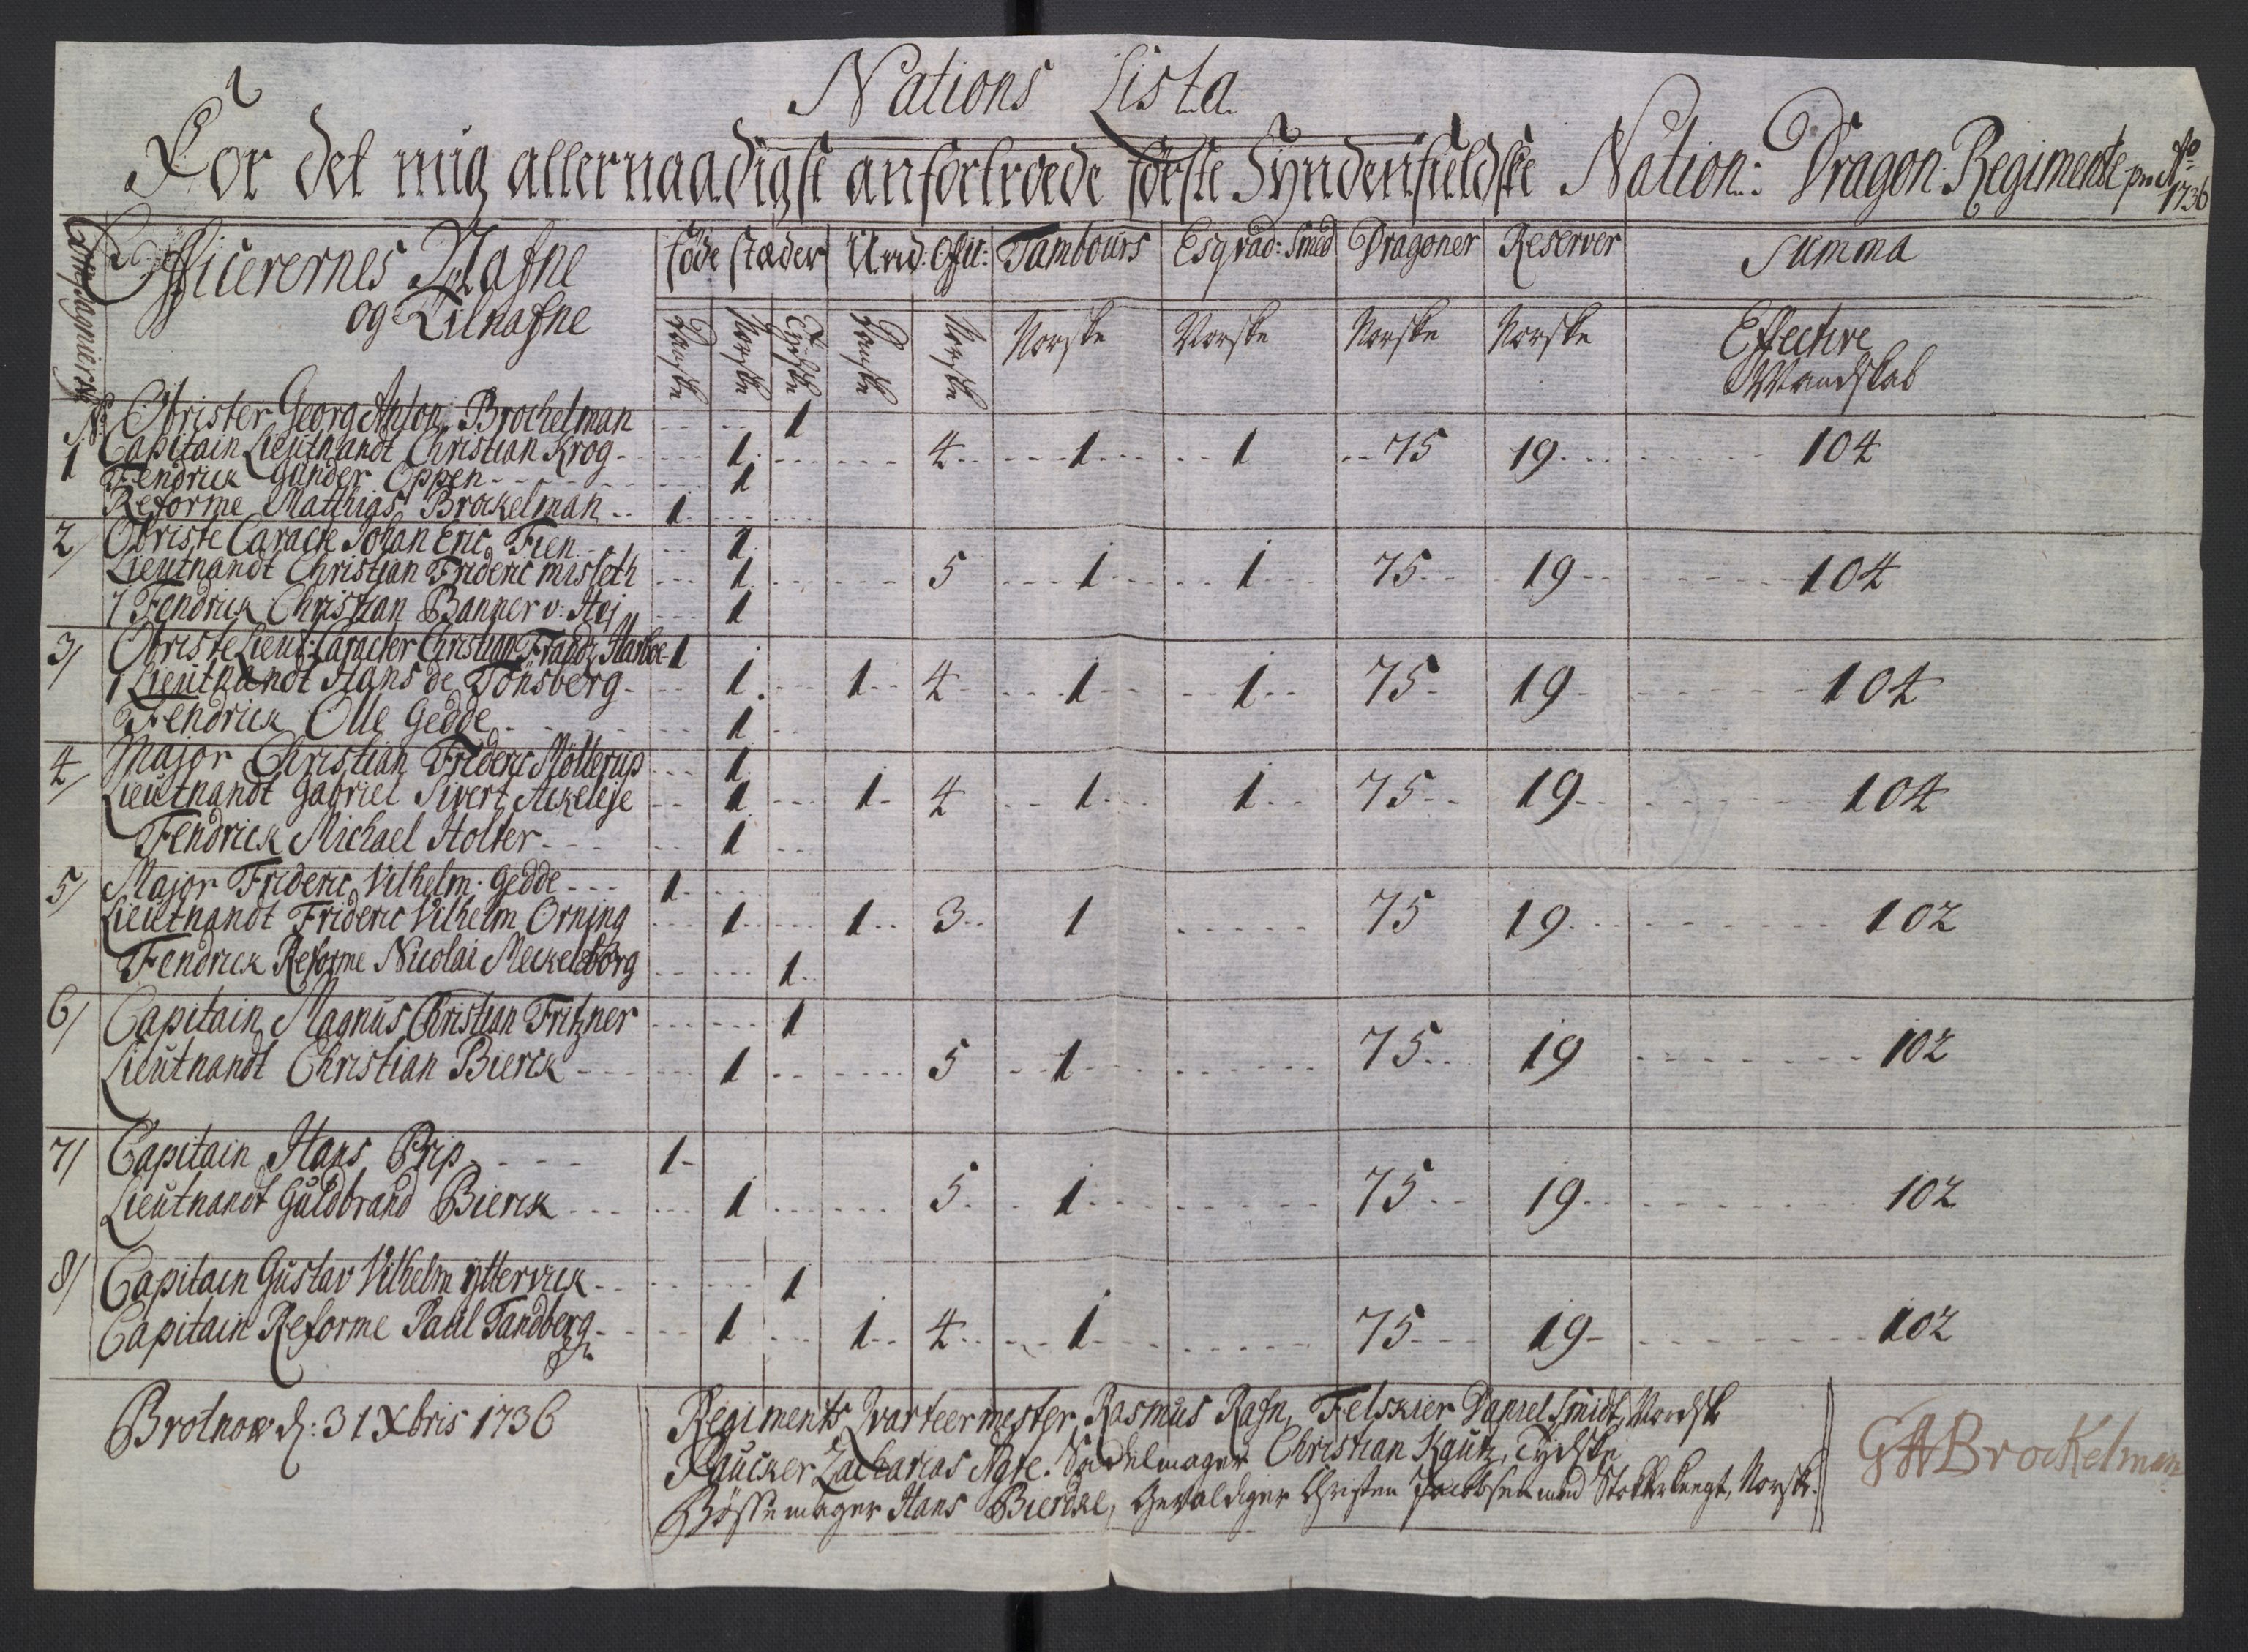 Nations Lista
For det mig allernaadigst anfortroede förste Syndenfieldske Nation: Dragon Regimente pro Ao 1736
Compagnierne
Officerernes Nafne
og Tilnafne
föde stæder Und: Offic: Tambours Esqvad: Smed Dragoner Reserver Summa
Danske Norske Tydske Danske Norske Norske Norske Norske Norske Effective
Mandskab
No Obrister Georg Anton Brockelman - - 1
1 Capitain Lieutnandt Christian Krog - 1 - - 4 - 1 - 1 - 75 19 - 104
Fendrick Gunder Oppen - - 1
Reforme Matthias Brockelman - 1 - -
2/ Obriste Caracte Johan Eric Fien - 1
Lieutnandt Christian Frideric Misleth - 1 - - 5 - 1 - 1 - 75 - 19 - 104
Fendrick Christian Banner v: Høj - 1
3/ Obriste Lieut: Caracter Christian Frandz Harboe 1
Lieutnandt Hans de Tönsberg - 1 - 1 - 4 - 1 - 1 - 75 - 19 - 104
Fendrick Olle Gedde - 1 -
4/ Major Christian Frideric Möllerup - 1
Lieutnandt Gabriel Sivert Ackeleje - 1 - 1 - 4 - 1 - 1 - 75 - 19 - 104
Fendrick Michael Holter - 1 -
5/ Major Frideric Vilhelm Gedde - 1 -
Lieutnandt Frideric Vilhelm Orning - 1 - 1 - 3 - 1 - 75 19 - 102
Fendrick Reforme Nicolai Meckelborg - - 1
6/ Capitain Magnus Christian Fritzner - - 1
Lieutnandt Christian Bierck - 1 - - 5 - 1 - - 75 - 19 - 102
7/ Capitain Hans Prip - 1 -
Lieutnandt Guldbrand Bierck - 1 - - 5 - 1 - - 75 - 19 - 102
8/ Capitain Gustav Vilhelm Yttervick - - 1
Capitain Reforme Paul Tandberg - 1 - 1 - 4 - 1 - - 75 - 19 - 102
Brotnow d: 31 Xbris 1736
Regiments Qvarteermester Rasmus Rafn, Felskier Daniel Smidt, Nordsk
Paucker Zacharias Agre. Sadelmager Christian Kautz, Tydske
Bössemager Hans Bierche, Gevaldiger Christen Jacobsen med Stokkeknegt, Norske.
GABrockelman